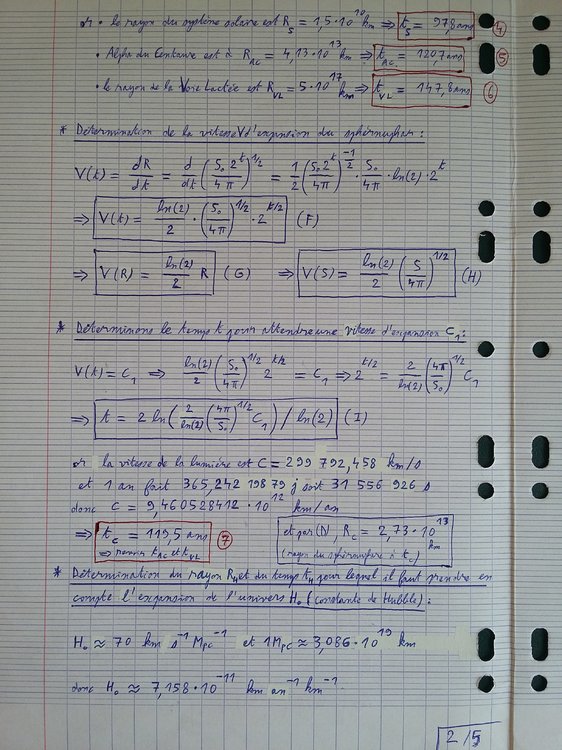 or • le rayon du système solaire est R_S = 1,5·10^10 km ⇒ t_S = 97,8 ans (4)
• Alpha du Centaure est à R_AC = 4,13·10^13 km ⇒ t_AC = 120,7 ans (5)
• le rayon de la Voie Lactée est R_VL = 5·10^17 km ⇒ t_VL = 147,8 ans (6)
* Détermination de la vitesse V d'expansion du sphèruphar :
V(t) = dR/dt = d/dt (S₀2^t/4π)^1/2 = 1/2 (S₀2^t/4π)^-1/2 · S₀/4π · ln(2) · 2^t
⇒ V(t) = ln(2)/2 · (S₀/4π)^1/2 · 2^t/2 (F)
⇒ V(R) = ln(2)/2 R (G) ⇒ V(S) = ln(2)/2 (S/4π)^1/2 (H)
* Déterminons le temps t pour attendre une vitesse d'expansion C₁ :
V(t) = C₁ ⇒ ln(2)/2 (S₀/4π)^1/2 2^t/2 = C₁ ⇒ 2^t/2 = 2/ln(2) (4π/S₀)^1/2 C₁
⇒ t = 2 ln(2/ln(2) (4π/S₀)^1/2 C₁) / ln(2) (I)
or la vitesse de la lumière est C = 299 792,458 km/s
et 1 an fait 365,242 198 79 j soit 31 556 926 s
donc C = 9,460528412·10^12 km/an
⇒ t_C = 119,5 ans (7)
et par (D), R_C = 2,73·10^13 km
(rayon du sphèrufure à t_C)
⇒ t_AC et t_VL
* Détermination du rayon R_H et du temps t_H pour lequel il faut prendre en
compte l'expansion de l'univers H₀ (constante de Hubble) :
H₀ ≈ 70 km s^-1 Mpc^-1 et 1 Mpc ≈ 3,086·10^19 km
donc H₀ ≈ 7,158·10^-11 km an^-1 km^-1
2/5